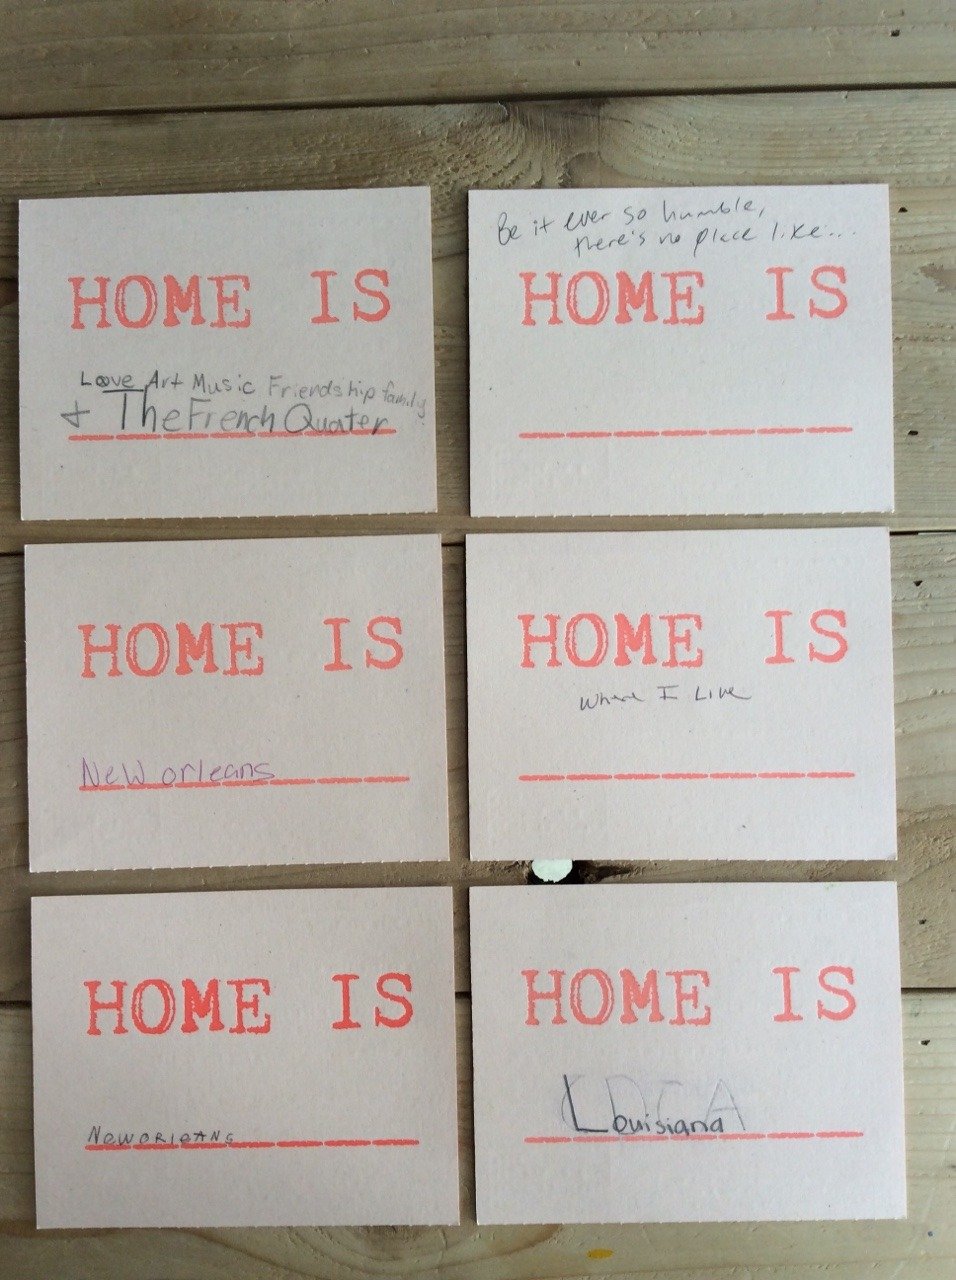 HOME IS
Love Art Music Friendship family
+ The French Quater
Be it ever so humble,
there's no place like...
HOME IS
HOME IS
New orleans
HOME IS
where I Live
HOME IS
NeW ORleANS
HOME IS
Louisiana